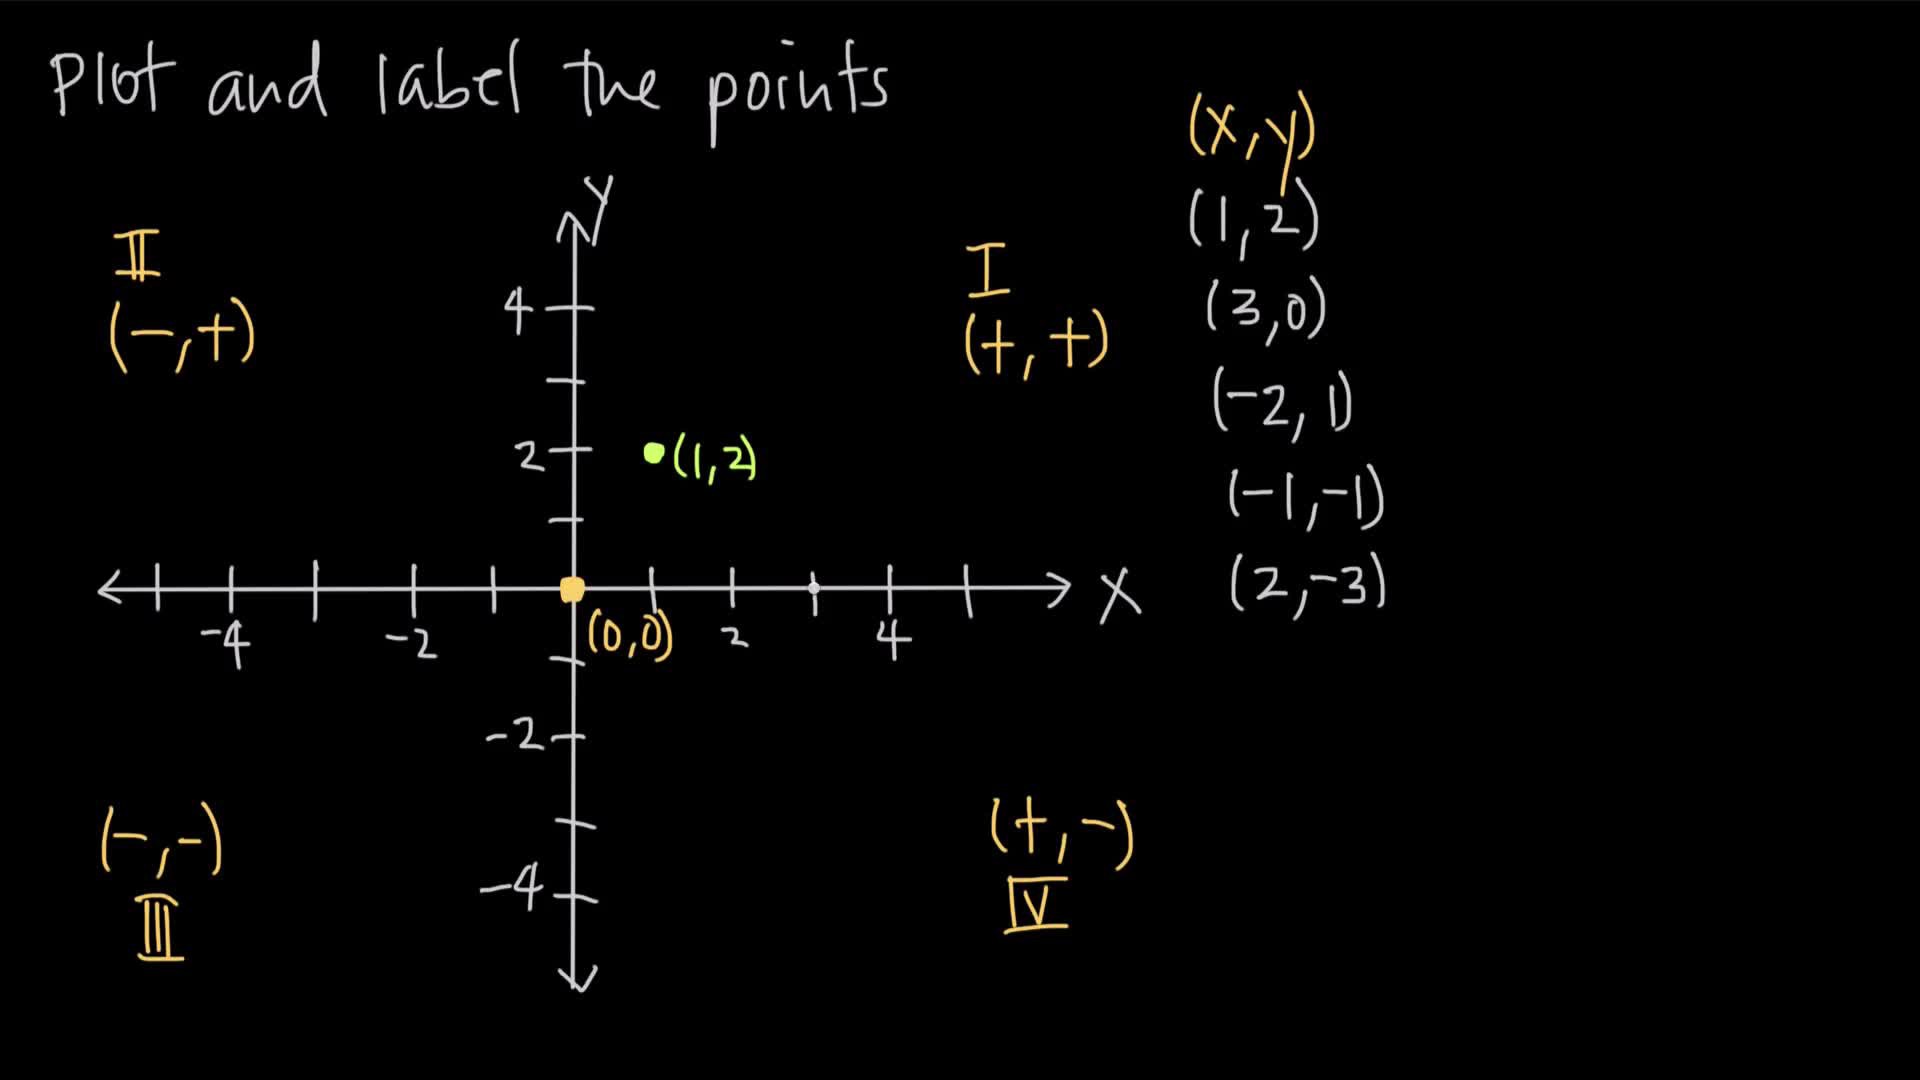 Plot and label the points
(x,y)
(1,2)
(3,0)
(-2,1)
(-1,-1)
(2,-3)
y
II
(-,+)
I
(+,+)
4
2
(1,2)
x
-4
-2
(0,0)
2
4
-2
-4
(-,-)
III
(+,-)
IV